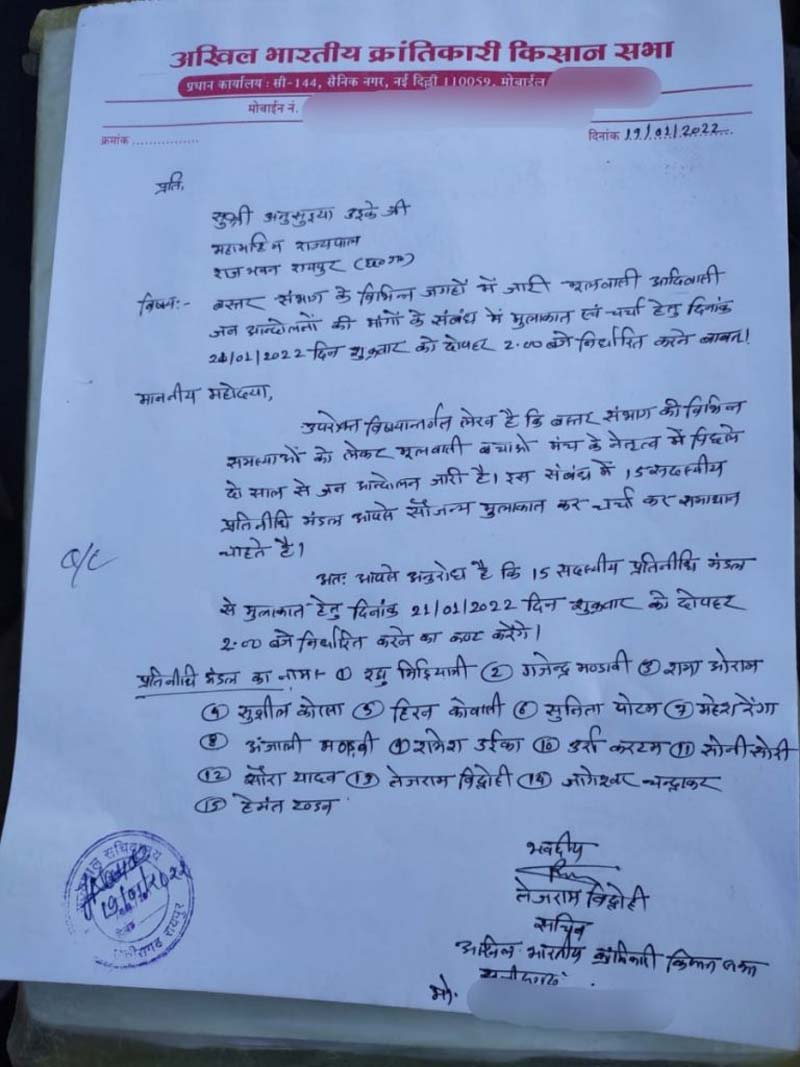 अखिल भारतीय क्रांतिकारी किसान सभा
प्रधान कार्यालय : सी-144, सैनिक नगर, नई दिल्ली 110059, मोबाईल
मोबाईन नं.
क्रमांक ............... दिनांक 19/01/2022
प्रति,
सुश्री अनुसुइया उइके जी
महामहिम राज्यपाल
राजभवन रायपुर (छ0ग0)
विषय:- बस्तर संभाग के विभिन्न जगहों में जारी मूलवासी आदिवासी
जन आन्दोलनों की मांगों के संबंध में मुलाकात एवं चर्चा हेतु दिनांक
21/01/2022 दिन शुक्रवार को दोपहर 2:00 बजे निर्धारित करने बाबत!
माननीय महोदया,
उपरोक्त विषयान्तर्गत लेख है कि बस्तर संभाग की विभिन्न
समस्याओं को लेकर मूलवासी बचाओ मंच के नेतृत्व में पिछले
दो साल से जन आन्दोलन जारी है। इस संबंध में 15 सदस्यीय
प्रतिनीधि मंडल आपसे सौजन्य मुलाकात कर चर्चा कर समाधान
चाहते है।
O/C
अत: आपसे अनुरोध है कि 15 सदस्यीय प्रतिनीधि मंडल
से मुलाकात हेतु दिनांक 21/01/2022 दिन शुक्रवार को दोपहर
2:00 बजे निर्धारित करने का कष्ट करेंगे।
प्रतिनीधि मंडल का नाम:- ① रघु मिडियामी ② गजेन्द्र मण्डावी ③ ओराम
④ सुशील कोरसा ⑤ हिरन कोवासी ⑥ सुनिता पोटम ⑦ महेश रेंगा
⑧ अंजाली मण्डवी ⑨ रामेश उईका ⑩ उर्रा करटम ⑪ सोनी सोरी
⑫ सौरा यादव ⑬ तेजराम विद्रोही ⑭ जागेश्वर चन्द्राकर
⑮ हेमंत टण्डन
भवदीय
तेजराम विद्रोही
सचिव
अखिल भारतीय क्रांतिकारी किसान सभा
मो.
सचिवालय
19/01/2022
छत्तीसगढ़ रायपुर